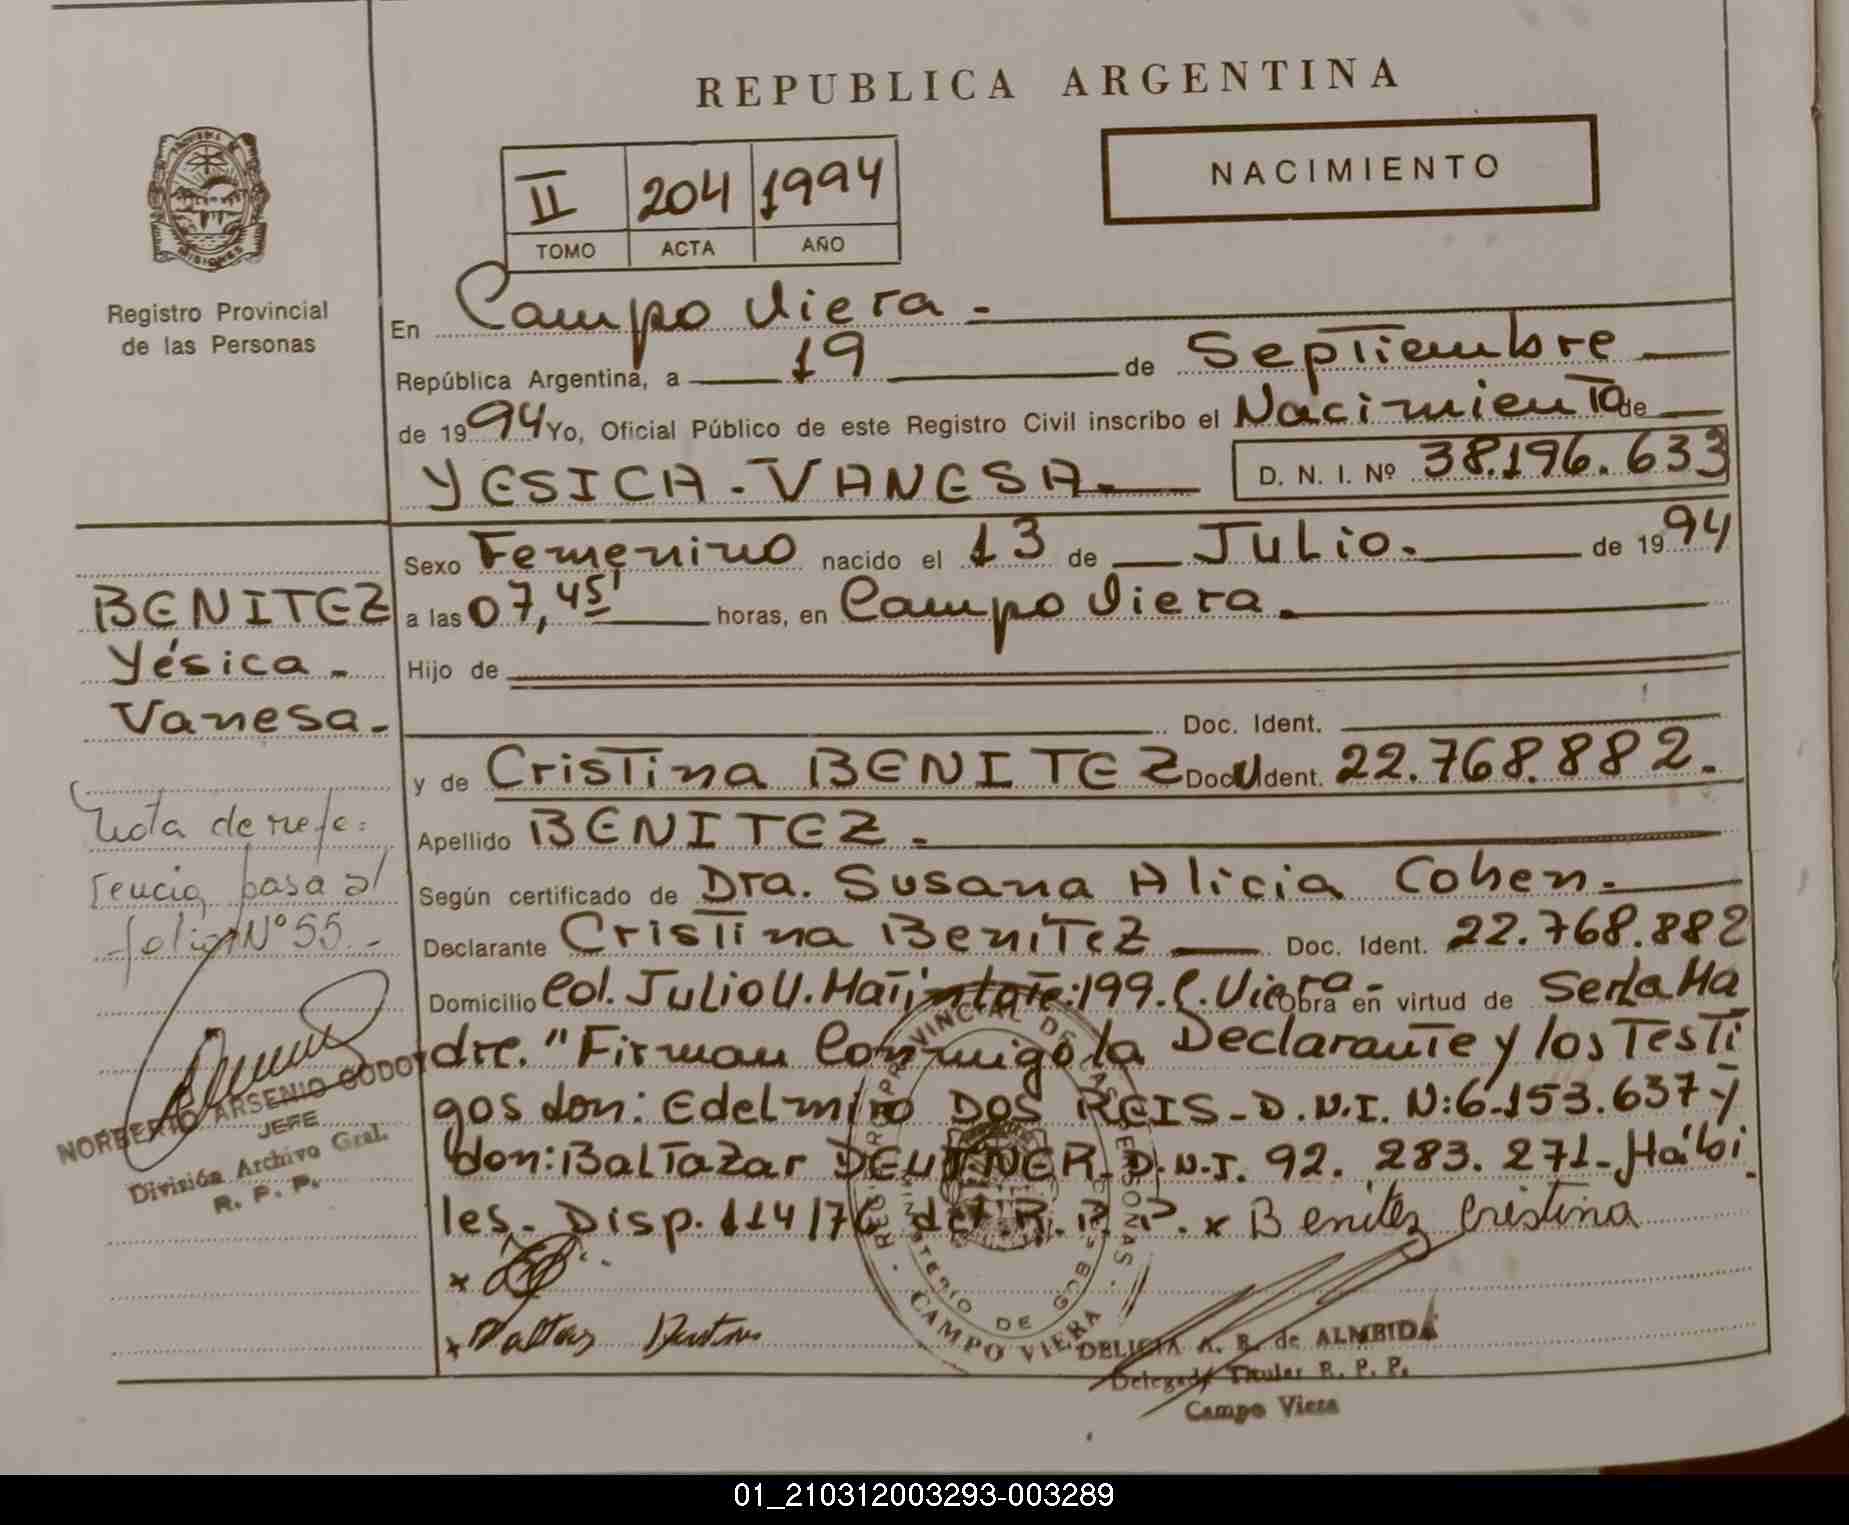 REPUBLICA ARGENTINA
NACIMIENTO
II 204 1994
TOMO ACTA AÑO
MISIONES
Registro Provincial
de las Personas
En Campo Viera.-
República Argentina, a 19 de Septiembre
de 1994 Yo, Oficial Público de este Registro Civil inscribo el Nacimiento de
YESICA-VANESA.- D. N. I. Nº 38.196.633
Sexo Femenino nacido el 13 de Julio. de 1994
a las 07,45' horas, en Campo Viera.
Hijo de
Doc. Ident.
y de Cristina BENITEZ Doc U Ident. 22.768.882.
Apellido BENITEZ.-
Según certificado de Dra. Susana Alicia Cohen.-
Declarante Cristina BeniTeZ Doc. Ident. 22.768.882
Domicilio Col. Julio U. Martin Lote:199.C. Viera - Obra en virtud de Ser la Ma
dre. "Firman Conmigo la Declarante y los Testi
gos don: Edelmiro DOS REIS-D.N.I. N:6.153.637 y
don: Baltazar DEUTNER-D.N.I. 92. 283. 271- Hábi
les.- Disp. 114/76 del R. P. P. x Benitez Cristina
x
x Baltazar
BENITEZ
Yésica-
Vanesa.-
Nota de refe:
rencia pasa al
folio Nº 55.-
NORBERTO ARSENIO GODOY
JEFE
División Archivo Gral.
R. P. P.
REG. PROVINCIAL DE LAS PERSONAS
MINISTERIO DE GOB
CAMPO VIERA
DELICIA A. R. de ALMEIDA
Delegada Titular R. P. P.
Campo Viera
01_210312003293-003289